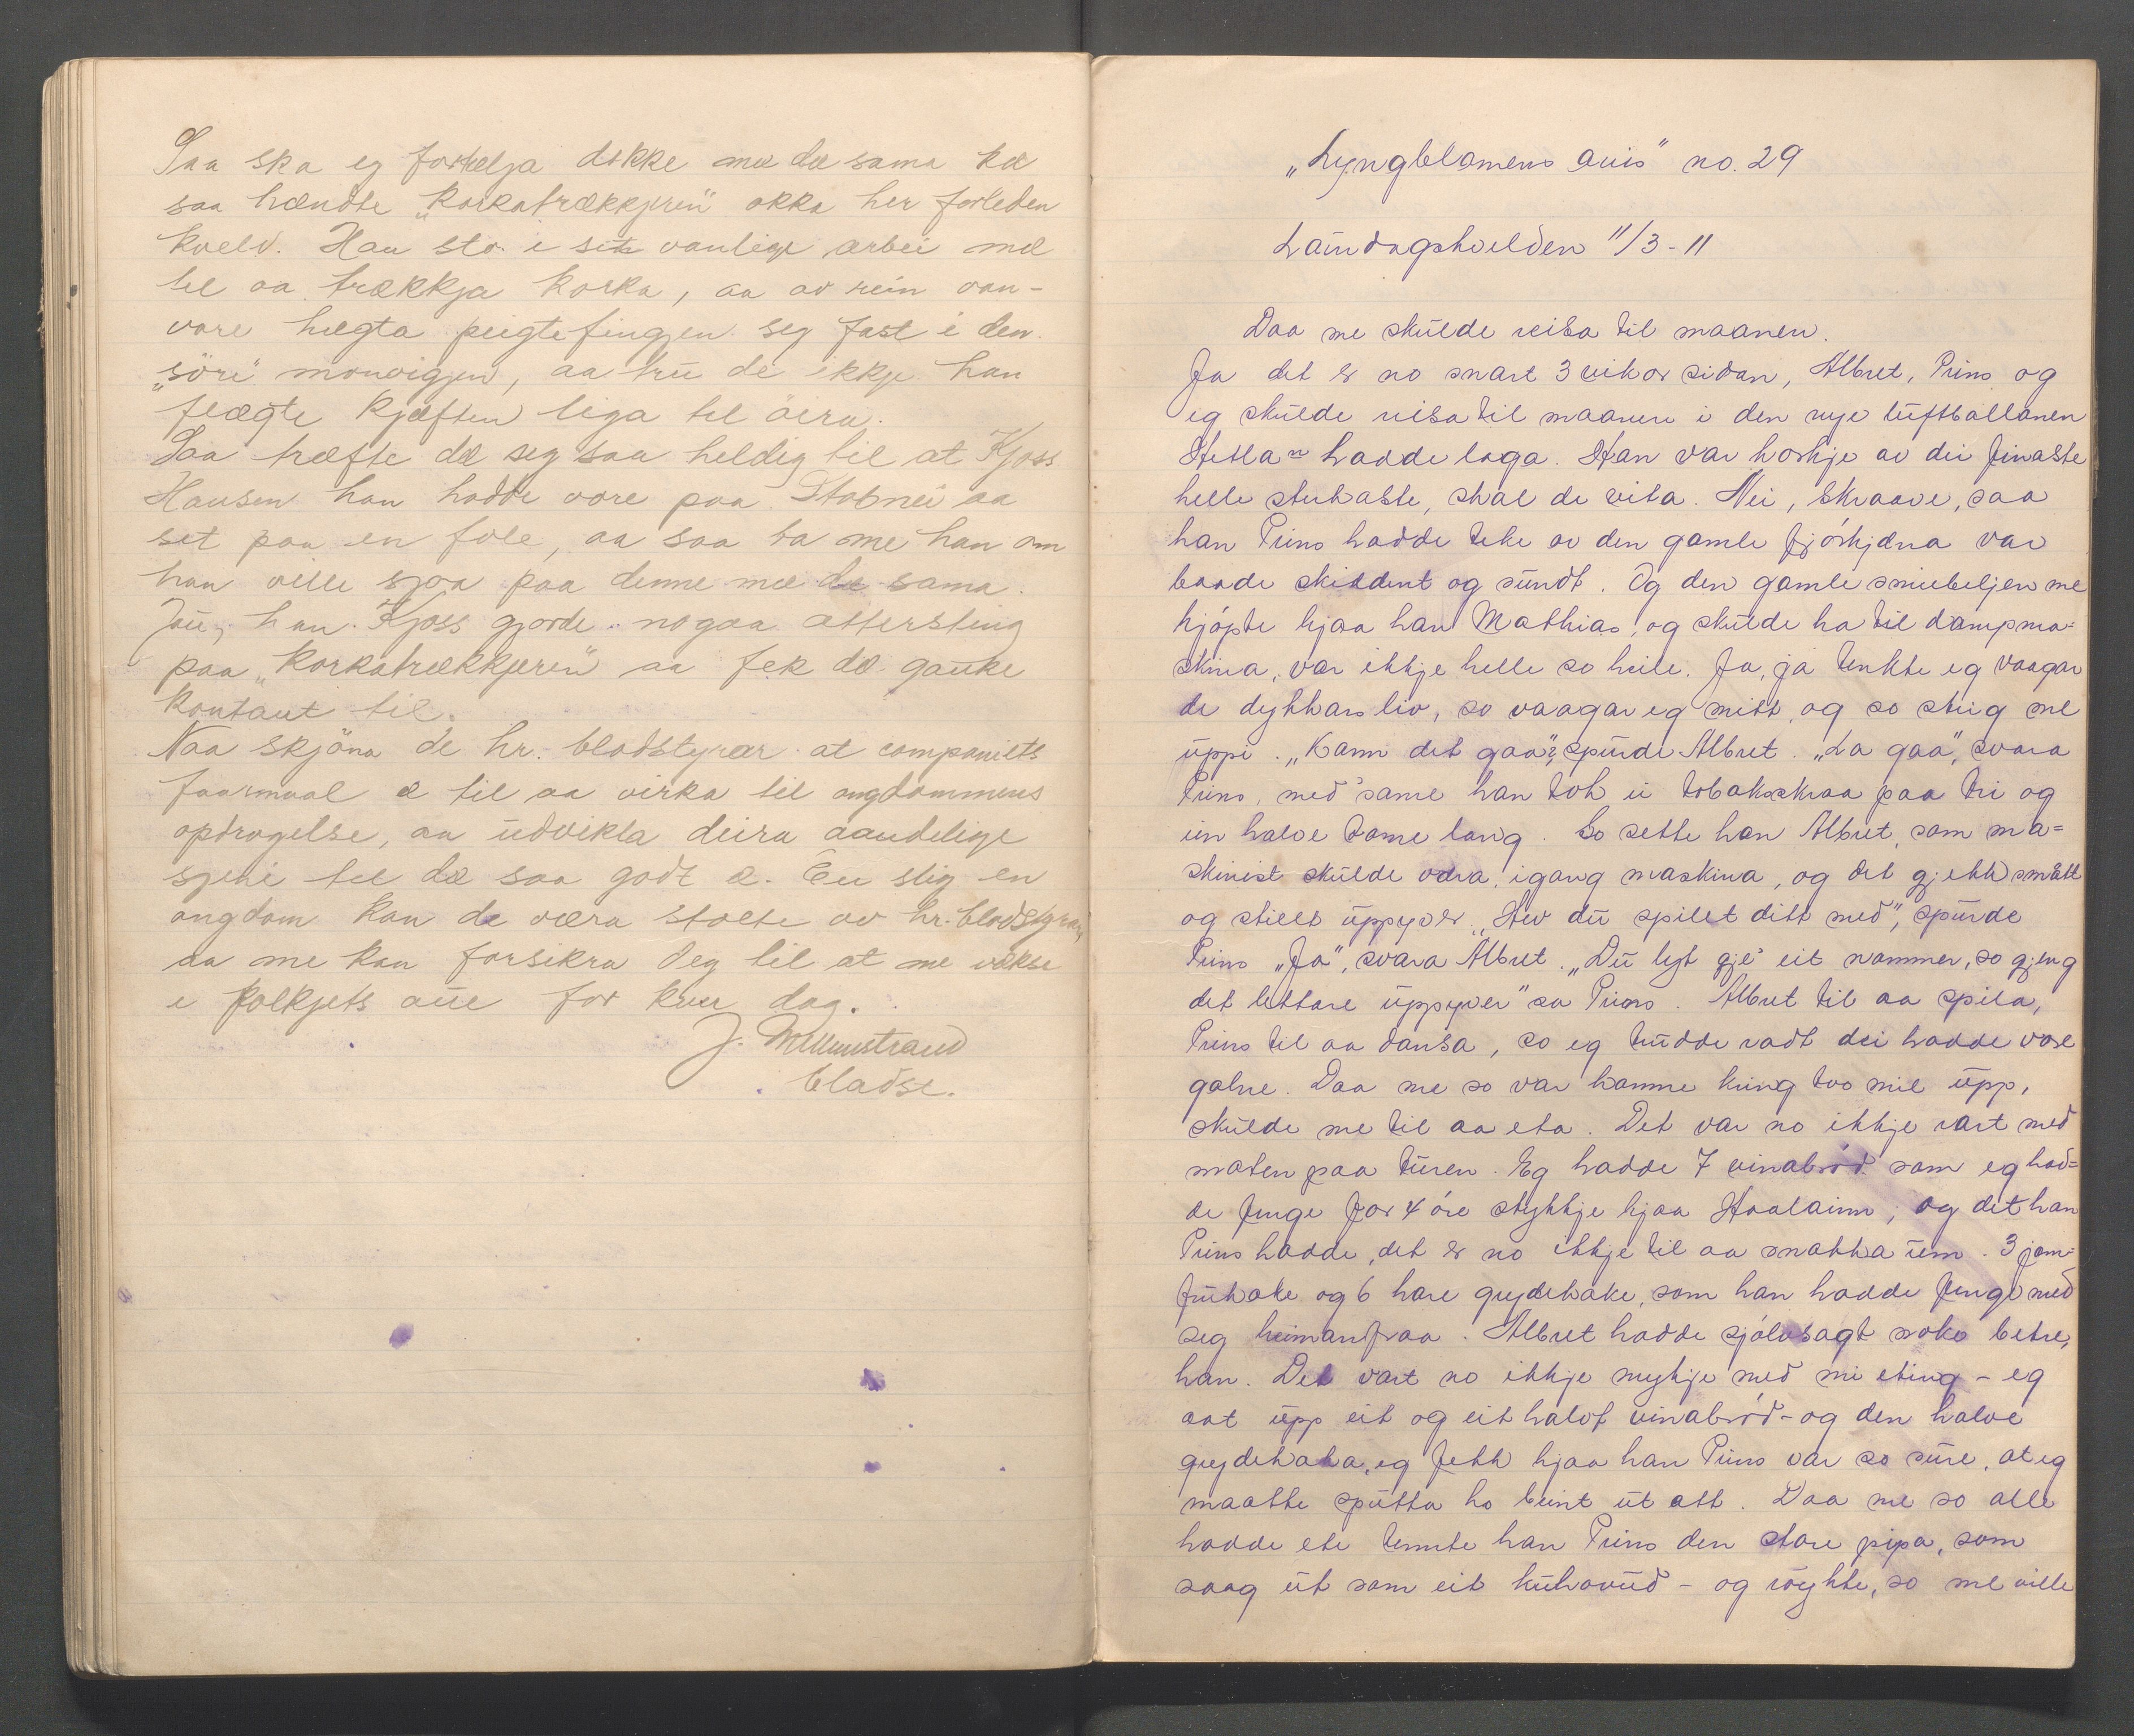 Saa ska eg fortelja dokke mæ dæ sama kæ
saa hændte „Korkatrækkjeren" okka her forleden
kveld. Han sto i sit vanlige arbei mæ
til aa trækkja korka, aa av rein van-
vare hægta peigtefingjen seg fast i den
„söre" monvigjen, aa tru de ikkje han
flægte kjæften liga til öira.
Saa træfte dæ seg saa heldig til at Kjoss
Hansen han hadde vore paa Stobnei aa
set paa en fole, aa saa ba me han om
han ville sjaa paa denne mæ dæ sama.
Jau, han Kjoss gjorde nogaa attersting
paa „Korkatrækkjeren" aa fek dæ gauke
kontant til.
Naa skjöna de hr. bladstyrar at companiets
faarmaal æ til aa virka til ungdommens
opdragelse, aa udvikla deira aandelige
sjeni til dæ saa godt æ. En slig en
ungdom kan de væra stolte av hr. bladstyrar,
aa me kan forsikra deg til at me vekse
i folkjets aue for kver dag.
J. Mellemstrand
bladse.
„Lyngblomens avis" no. 29
Laurdagskvelden 11/3-11
Daa me skulde reisa til maanen.
Ja det er no snart 3 vikor sidan, Albret, Prins og
eg skulde reisa til maanen i den nye luftballonen
Hetlan hadde laga. Han var korkje av dei finaste
helle sterkaste, skal de vita. Nei, skraave, saa
han Prins hadde teke av den gamle fjórkjdna var
baade skiddent og sundt. Og den gamle smiebeljen me
kjópte hjaa han Mathias, og skulde ha til dampma-
skina, var ikkje helle so heile. Ja, ja tenkte eg vaagar
de dykkars liv, so vaagar eg mitt, og so steig me
uppi. „Kann det gaa"? spurde Albret. „La gaa", svara
Prins, med same han tok ei tobakskraa paa tri og
ein halve tome lang. So sette han Albret, som ma-
skinist skulde vera, igang maskina, og det gjekk smått
og stillt uppyver. „Hev du spilet ditt med", spurde
Prins „Ja", svara Albret. „Du lyt gje' eit nommer, so gjeng
det lettare uppyver" sa Prins. Albret til aa spila,
Prins til aa dansa, so eg trudde radt dei hadde vore
galne. Daa me so var komne kring two mil upp,
skulde me til aa eta. Det var no ikkje rart med
maten paa turen. Eg hadde 7 vinabród som eg had-
de finge for 4 óre stykkje hjaa Haalaim, og det han
Prins hadde, det er no ikkje til aa snakka um. 3 jom-
frukake og 6 hare grydekake, som han hadde fenge med
seg heimanfraa. Albret hadde sjólvsagt noko betre,
han. Det vart no ikkje mykje med mi eting - eg
aat upp eit og eit halvt vinabród - og den halve
grydekaka, eg fekk hjaa han Prins var so sure, at eg
maatte sputta ho beint ut att. Daa me so alle
hadde ete tennte han Prins den store pipa, som
saag ut som eit kuhovud - og röykte, so me ville